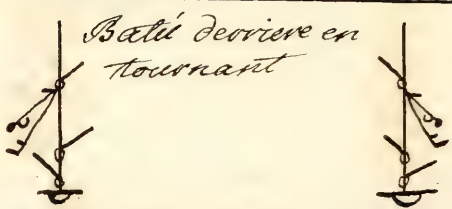 Batú derriere en
tournant